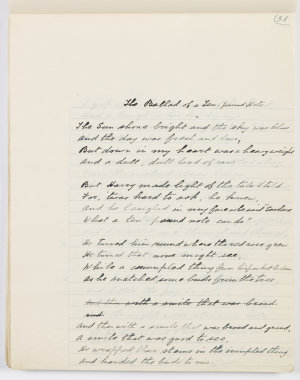 (38
The Ballad of a Ten-pound Note
The Sun shone bright and the sky was blue
And the day was fresh and
But down in my heart was a heavy weight
And a dull, dull load of care
But Harry made light of the tale I told
For, 'twas hard to ask, he knew,
And he laughed in my face
What a ten-pound note can do!
He turned him round where the red rose grew
He turned that none might see,
While a crumpled thing from
As he snatched some buds from the tree
with a smile that was broad
and
And then with a smile that was broad and grand,
A smile that was good to see,
He wrapped their stems in the crumpled thing
And handed the buds to me.